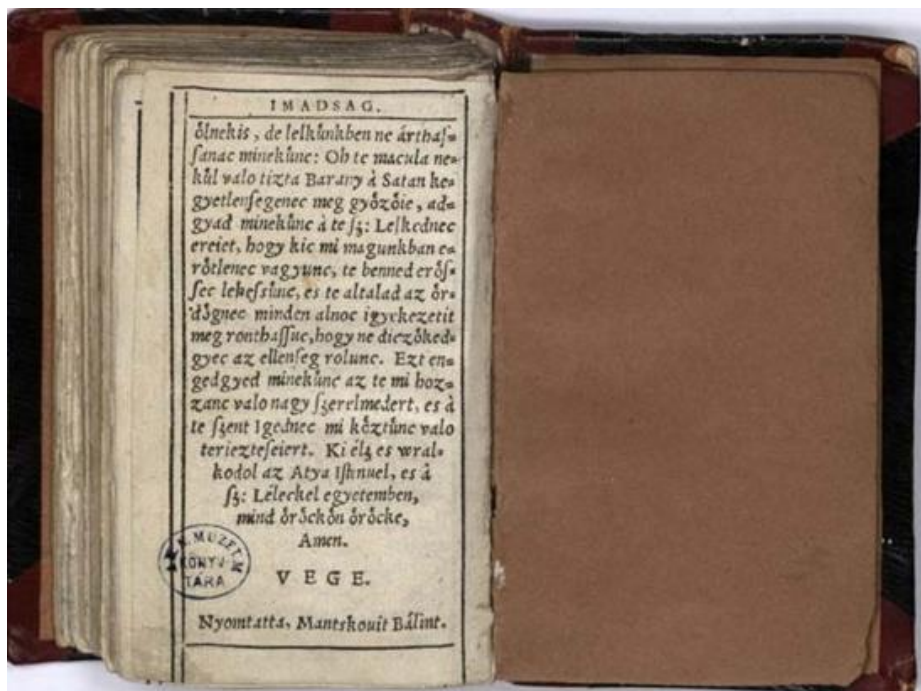 IMADSAG.
ôlnekis, de lelkûnkben ne árthaſ=
ſanac minekûnc: Oh te macula ne=
kûl valo tizta Barany à Satan ke=
gyetlenſegenec meg gyôzôie, ad=
gyad minekûnc à te ſʒ: Lelkednec
ereiet, hogy kic mi magunkban e=
rôtlenec vagyunc, te benned erôſ=
ſec leheſsûnc, es te altalad az ôr=
dôgnec minden alnoc igyekezetit
meg ronthaſſuc, hogy ne diczôked=
gyec az ellenſeg rolunc. Ezt en=
gedgyed minekûnc az te mi hoz=
zanc valo nagy ſʒerelmedert, es à
te ſʒent Igednec mi kôztûnc valo
teriezteſeiert. Ki élʒ es wral=
kodol az Atya Iſtnuel, es à
ſʒ: Léleckel egyetemben,
mind ôrôckôn ôrôcke,
Amen.
VEGE.
Nyomtatta, Mantskouit Bálint.
MUZEUM
KÖNYV
TÁRA